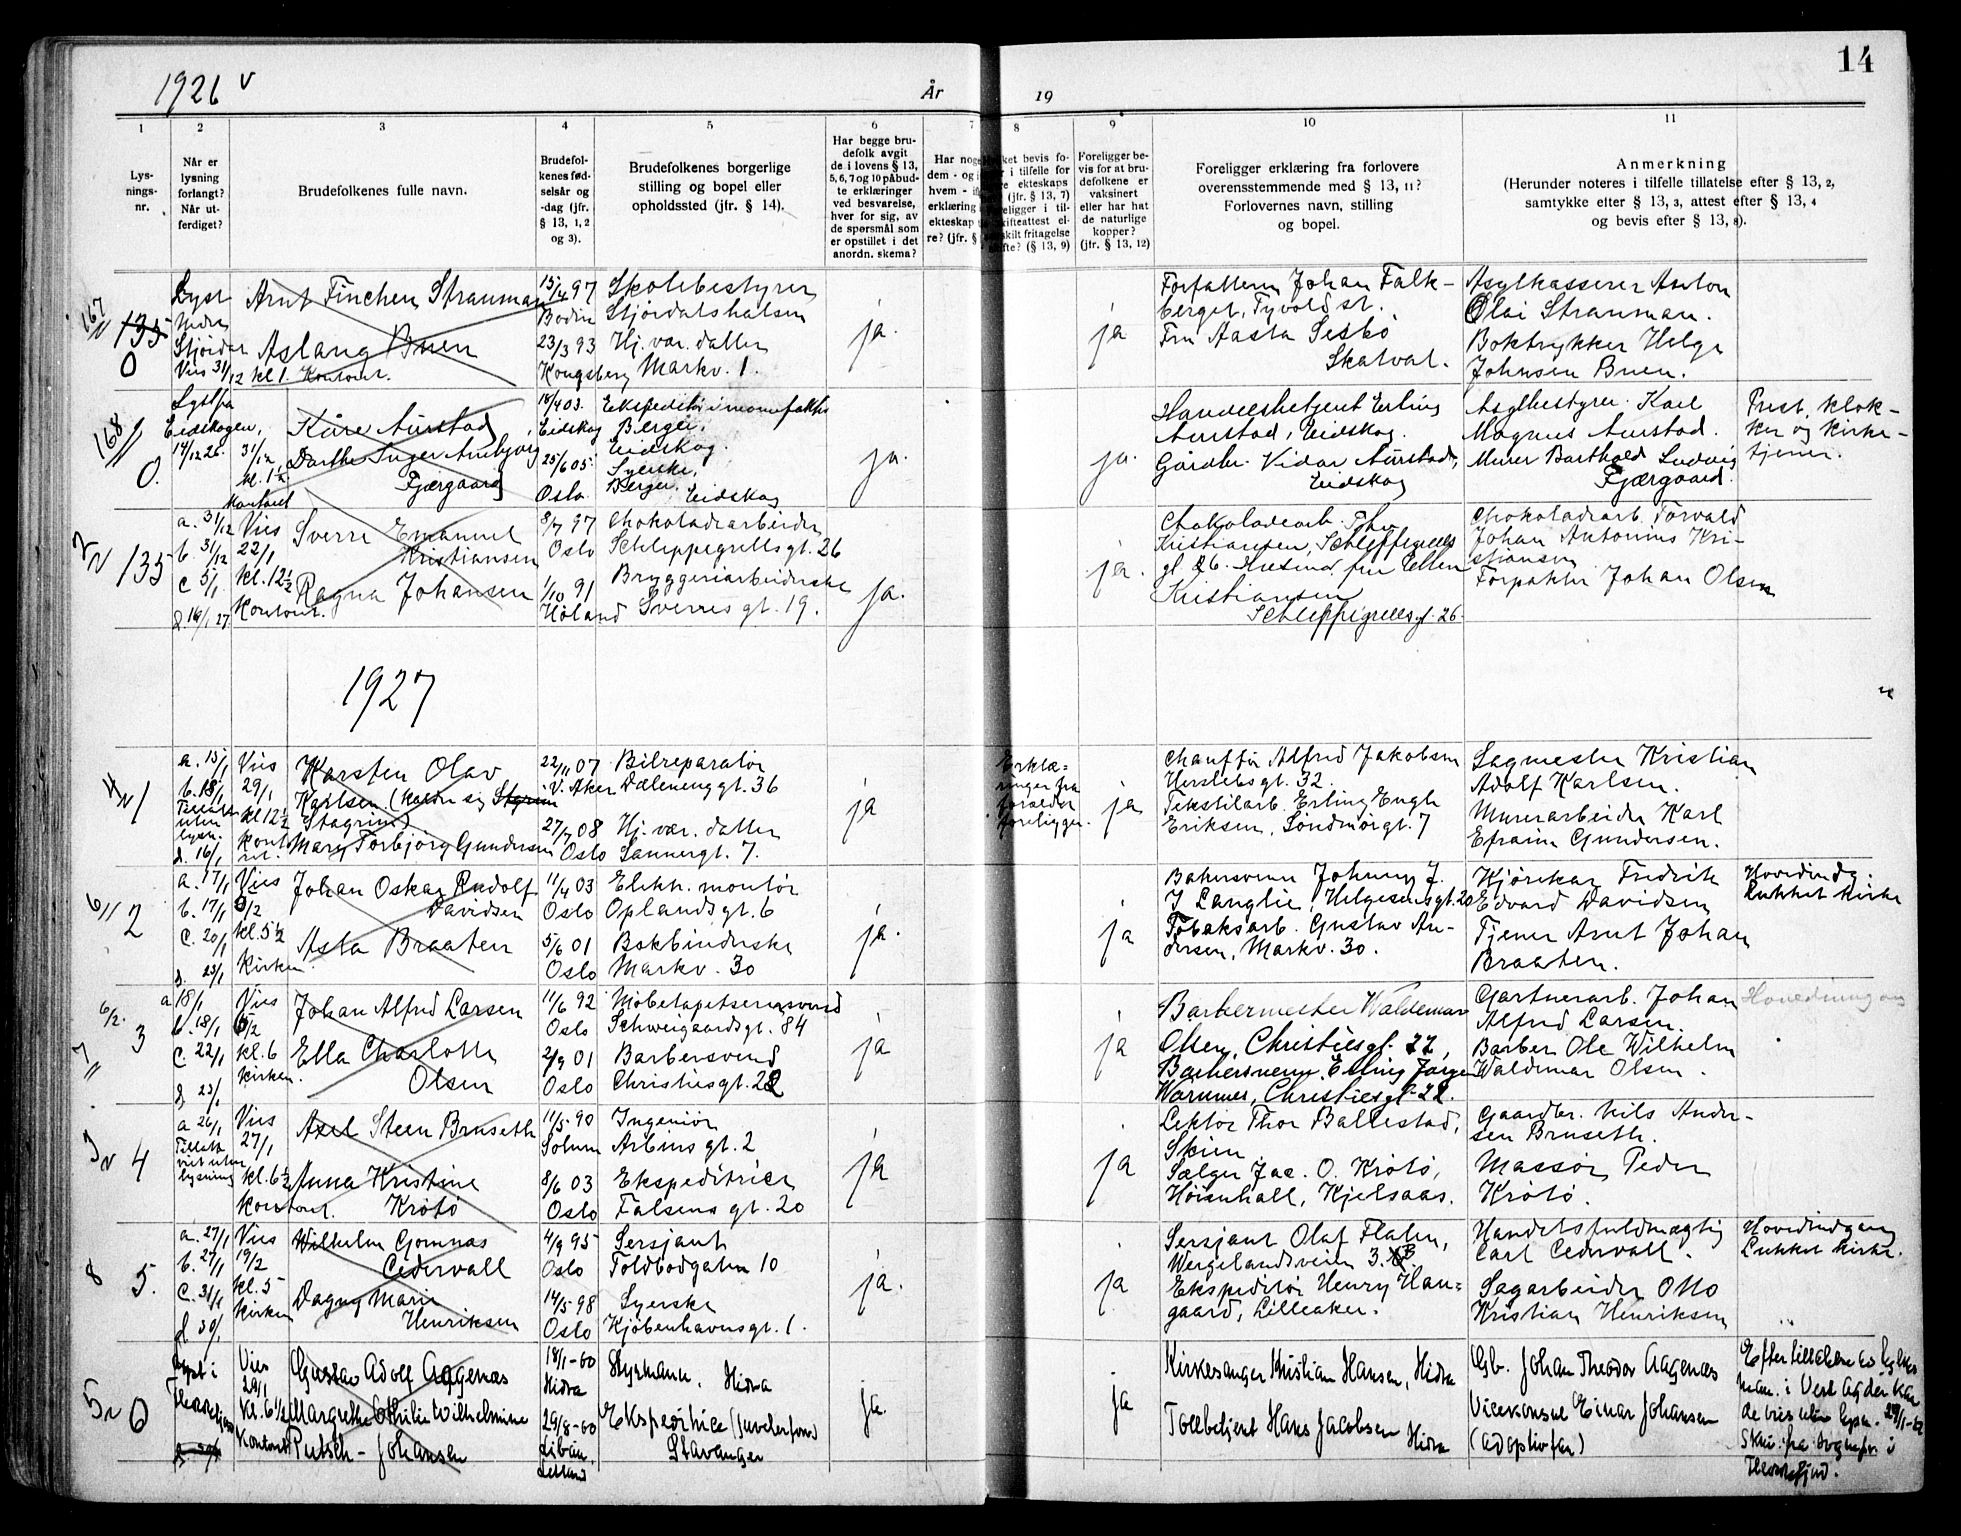 14
1926 v
År
19
1 2 3 4 5 6 7 8 9 10 11
Lys-
nings-
nr.
Når er
lysning
forlangt?
Når ut-
ferdiget?
Brudefolkenes fulle navn.
Brudefol-
kenes fød-
selsår og
-dag (jfr.
§ 13, 1, 2
og 3).
Brudefolkenes borgerlige
stilling og bopel eller
opholdssted (jfr. § 14).
Har begge bru-
defolk avgit
de i lovens § 13,
5, 6, 7 og 10 påbud-
te erklæringer
ved besvarelse,
hver for sig, av
de spørsmål som
er opstillet i det
anordn. skema?
Har nog
dem - og i
hvem -
erklæring
ekteskap
re? (jfr. §
ket bevis fo-
r i tilfelle for
re ekteskaps
(jfr. § 13, 7)
religger i til-
skifteattest el-
skilt fritagelse
fte? (§ 13, 9)
Foreligger be-
vis for at bru-
defolkene er
vaksinert
eller har hat
de naturlige
kopper?
(jfr. § 13, 12)
Foreligger erklæring fra forlovere
overensstemmende med § 13, 11?
Forlovernes navn, stilling
og bopel.
Anmerkning
(Herunder noteres i tilfelle tillatelse efter § 13, 2,
samtykke efter § 13, 3, attest efter § 13, 4
og bevis efter § 13, 8).
167
135
0
Lyst
Nedre
Stjørdar
Vies 31/12 kl 1. Kontoret.
Arnt Finchen Straumann
Aslaug Buen
15/4 97
Bodin
23/3 93
Kongsberg
Skolebestyrer
Stjørdalshalsen
Hj. vær. datter
Markv. 1.
ja.
ja
Forfatteren Johan Falk-
berget, Tyvold st.
Fru Aasta Sesbö
Skatval.
Asylkasserer Anton
Olai Strauman.
Boktrykker Helge
Johnsen Buen.
168
0.
Lyst fra
Eidskogen,
14/12 26. 31/12
kl. 1½
Kontoret
Kåre Aurstad
Dorthe Inger Ambjørg
Fjærgaard
18/4 03.
Eidskog
25/6 05.
Oslo.
Ekspeditør i manufaktur
Berger,
Eidskog.
Syerske,
Berger, Eidskog
ja.
ja.
Handelsbetjent Erling
Aurstad, Eidskog.
Gårdbr. Vidar Aurstad,
Eidskog
Asylbestyrer Karl
Magnus Aurstad.
Murer Barthold Ludvig
Fjærgaard.
Prest, klok-
ker og kirke-
tjener.
135
a. 31/12 Vies
b. 31/12 22/1
c 5/1 kl. 12½
d. 16/1 27 Kontoret.
Sverre Emanuel
Kristiansen
Ragna Johansen
8/7 97
Oslo
1/10 91
Høland
Chokoladearbeider
Schleppegrellsgt. 26
Bryggeriarbeiderske
Sverres gt. 19.
ja.
ja.
Chokoladearb. Thv.
Kristiansen, Schleppegrells
gt 26. fru Ellen
Kristiansen
Schleppegrellsgt. 26.
Chokoladearb. Torvald
Johan Antonius Kri-
stiansen
Forpakter Johan Olsen
1927
1
a. 15/1 Vies
b. 18/1 29/1
Tillatelse
uten
lysn.
kl 12½
d. 16/1
Karsten Olav
Karlsen (kalder sig
Stagrim)
Mary Torbjørg Gundersen
22/11 07
V. Aker
27/7 08
Oslo
Bilreparatør
Dælenenggt. 36
Hj. vær. datter
Sannergt. 7.
ja
Erklæ-
ringer fra
forældre
foreligger.
ja
Chauffør Alfred Jakobsen
Herslebsgt. 32.
Tekstilarb. Erling Engh
Eriksen, Søndmørgt. 7
Sagmester Kristian
Adolf Karlsen.
Murerarbeider Karl
Efraim Gundersen.
2
a. 17/1 Vies
b. 17/1 5/2
c. 20/1 kl. 5½
d. 23/1 Kirken.
Johan Oskar Rudolf
Davidsen
Asta Braaten
11/4 03
Oslo
5/6 01
Oslo
Elektr. montør
Oplandsgt. 6
Bokbinderske
Markv. 30
ja.
ja
Bakersvenn Johnny J.
J Langlie, Helgesensgt. 20
Tobaksarb. Gustav An-
dersen, Markv. 30.
Kjørekar Fredrik
Edvard Davidsen
Tjener Arnt Johan
Braaten.
Hovedindg.
Lukket kirke
6/2.
3
a 18/1 Vies
b. 18/1 6/2
c. 22/1 kl. 6
d 23/1 kirken.
Johan Alfred Larsen
Ella Charlotte
Olsen
11/6 92
Oslo
2/9 01
Oslo
Møbeltapetserersvend
Schweigaardsgt. 84
Barbersvend
Christiesgt. 22
ja
ja
Barbermester Waldemar
Olsen, Christiesgt. 22,
Barbersvenn Erling Jørgen
Warumes, Christiesgt. 22.
Gartnerarb. Johan
Alfred Larsen.
Barber Ole Wilhelm
Waldemar Olsen.
Hovedinngang
4
a 26/1 Vies
27/1
Tillatt
viet uten
lysning
kl. 6½
kontoret.
Axel Steen Bruseth
Anna Kristine
Krötö
11/5 90
Solum
8/6 03
Oslo
Ingeniør
Arbins gt. 2
Ekspeditrice
Falsens gt. 20
ja
ja
Lektor Thor Ballestad,
Skien
Sælger Jac. O. Krötö,
Høienhall, Kjelsaas.
Gaardbr. Nils Ander-
sen Bruseth.
Massør Peder
Krötö.
8
5.
a. 27/1 Vies
b. 27/1 19/2
c. 31/1 kl. 5
d 30/1 kirken
Wilhelm Gomnæs
Cedervall
Dagny Marie
Henriksen
4/9 95
Oslo
14/5 98
Oslo
Sersjant
Toldbodgaten 10
Syerske
Kjøbenhavnsgt. 1.
ja.
ja
Sersjant Olaf Flaten,
Wergelandsveien 3. B
Ekspeditør Henry Hau-
gaard, Lilleaker.
Handelsfuldmægtig
Carl Cedervall.
Sagarbeider Otto
Kristian Henriksen
Hovedindgang
Lukket kirke.
0
Lyst i
Vies
29/1
kl. 6½
Kontoret
Gustav Adolf Aagenæs
Margrethe Othilie Wilhelmine
Putsch - Johansen
18/1-00
Hidra
29/8-00
Libau,
Letland
Styrmann, Hidra
Ekspeditrice (juvelerforr.)
Stavanger
ja.
ja
Kirkesanger Kristian Hansen, Hidra
Tollbetjent Hans Jacobsen Hidra
Gb. Johan Theodor Aagenæs
Vicekonsul Einar Johansen
(adoptivfar)
Efter tillatelse av fylkes
man. i Vest Agder kan
de vies uten lysn.
Skriv. fra sognepr. i